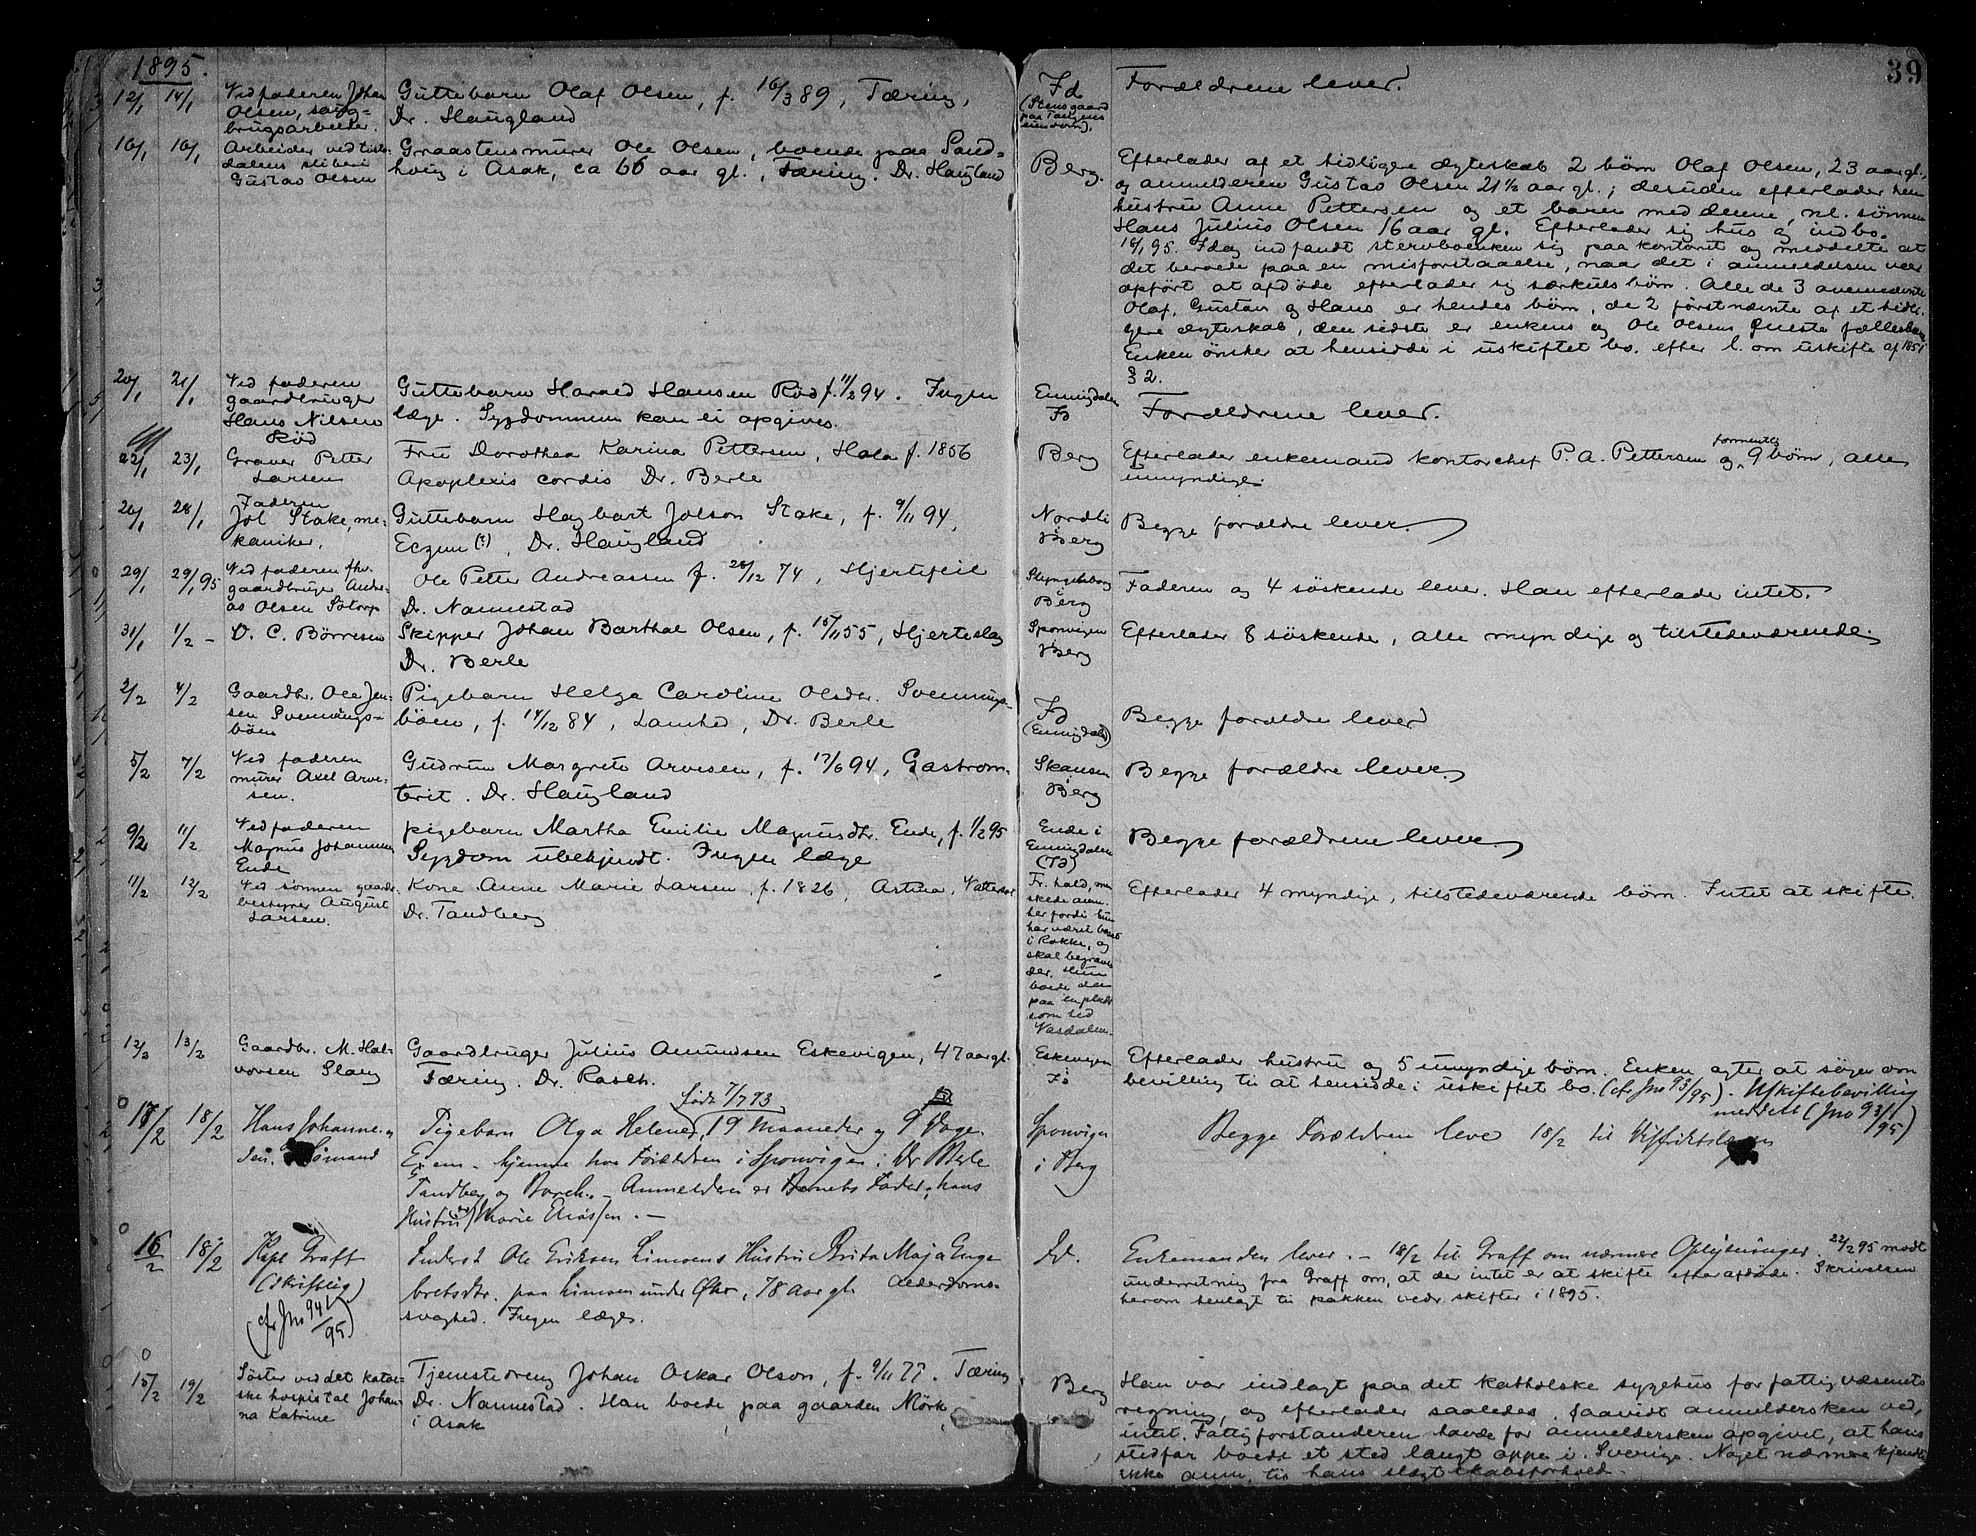 1895.
39
12/1 14/1 Ved faderen Johan Guttebarn Olaf Olsen, f. 16/3 89, Tæring, Id Forældrene lever.
Olsen, saug- Dr. Haugland (Stensgaard
brugsarbeider. paa Tangens
eiendom).
16/1 16/1 Arbeider ved Tiste- Graastensmurer Ole Olsen, boende paa Sand- Berg. Efterlader af et tidligere ægteskab 2 børn Olaf Olsen, 23 aar gl.,
dalens sliberi hvig i Asak, ca 66 aar gl., Tæring. Dr. Haugland og anmelderen Gustav Olsen 21½ aar gl.; desuden efterlader han
Gustav Olsen hustru Anne Pettersen og et barn med denne, nl. sønnen
Hans Julius Olsen 16 aar gl. Efterlader sig hus og indbo.
18/1 95. Idag indfandt stervboenken sig paa kontoret og meddelte at
det beroede paa en misforstaaelse, naar det i anmeldelsen var
opført at afdøde efterlader sig særkulsbørn. Alle de 3 ovennævnte
Olaf, Gustav og Hans er hendes børn, de 2 førstnævnte af et tidli-
gere ægteskab, den sidste er enkens og Ole Olsens eneste fællesbarn
Enken ønsker at hensidde i uskiftet bo. efter l. om uskifte af 1851
§ 2.
20/1 21/1 Ved faderen Guttebarn Harald Hansen Rød f. 11/2 94. Ingen Enningdalen Forældrene lever.
gaardbruger læge. Sygdommen kan ei opgives. Id
Hans Nilsen
Rød
22/1 23/1 Graver Petter Fru Dorothea Karina Pettersen, Hola f. 1856 Berg Efterlader enkemand kontorchef P. A. Pettersen og formentlig 9 børn, alle
Larsen Apoplexis cordis Dr. Berle umyndige.
20/1 28/1 Faderen
Joh Stake, me- Guttebarn Hagbart Jolson Stake, f. 9/11 94, Nordli Begge forældre lever.
kaniker, Eczem (?), Dr. Haugland Berg
29/1 29/1 95 Ved faderen fhv. Ole Petter Andreassen f. 28/12 74, Hjertefeil Faderen og 4 søskende lever. Han efterlade intet.
gaardbruger Andre- Dr. Nannestad Berg
as Olsen Sotorp
31/1 1/2 - O. C. Børresen Skipper Johan Barthol Olsen, f. 15/11 55, Hjerteslag Sponvigen Efterlader 8 søskende, alle myndige og tilstedeværende.
Dr. Berle Berg
2/2 4/2 Gaardbr. Ole Jen- Pigebarn Helga Caroline Olsdr. Svennings- Id Begge forældre lever
sen Svennings- bøen, f. 14/12 84, Dr. Berle (Enningdalen)
bøen
5/2 7/2 Ved faderen Gudrun Margrete Arvesen, f. 17/6 94, Gastroen- Skansen Begge forældre lever.
murer Axel Arve- terit. Dr. Haugland Berg
sen.
9/2 11/2 Ved faderen pigebarn Martha Emilie Magnusdtr. Ende, f. 1/2 95 Ende i Begge forældrene lever.
Magnus Johannesen Sygdom ubekjendt. Ingen læge Enningdalen
Ende (Id)
11/2 12/2 Ved sønnen gaards- Kone Anne Marie Larsen, f. 1826, Astma, Vattersot Fr.hald, an- Efterlader 4 myndige, tilstedeværende børn. Intet at skifte.
bestyrer August Dr. Tandberg skede anm.
Larsen. her fordi hun
har været boset
i Rokke, og
skal begraves
der. Hun
boede der
paa en plads
som hed
Vasdalen.
12/2 13/2 Gaardbr. M. Hal- Gaardbruger Julius Amundsen Eskevigen, 47 aar gl. Eskevigen Efterlader hustru og 5 umyndige børn. Enken agter at søge om
vorsen Slang Tæring. Dr. Rasch. Id bevilling til at hensidde i uskiftet bo. (cfr Jno 93/95). Uskiftebevilling
meddelt (Jno 93/95)
født 7/7 93
17/2 18/2 Hans Johanne- Pigebarn Olga Helene, 19 Maaneder og 9 Dage Sponvigen Begge Forældren leve 18/2 til
sen. Sømand Exem - hjemme hos Forældren i Sponvigen i Dr Berle i Berg
Tandberg og Borch. - Anmelderen er Barnets Fader, hans
Hustru Marie Eliassen. -
16/2 18/2 Kapl Graff Inderst Ole Eriksen Limoens Hustru Brita Maja Enge Id. Enkemanden lever. - 18/2 til Graff om nærmere Oplysninger. 22/2 95 modt
(skriftlig) bretsdtr. paa Limoen under Øbr, 78 aar gl. Alderdoms- underretning fra Graff om, at der intet er at skifte efter afdøde. Skrivelsen
(cfr Jno 94/95) svaghed. Ingen læge. herom henlagt til pakken vedr. skifter i 1895.
15/2 19/2 Søster ved det katol- Tjenestedreng Johan Oskar Olson, f. 9/11 77. Tæring Berg Han var indlagt paa det katholske sygehus for fattigvæsenets
ske hospital Johan- Dr. Nannestad. Han boede paa gaarden Mörk regning, og efterlader saaledes, saavidt anmeldersken ved,
na Katrine i Asak intet. Fattigforstanderen havde for anmeldersken opgivet, at hans
stedfar boede et sted langt oppe i Sverige. Noget nærmere kjendte
ikke anm. til hans slægtskabsforhold.